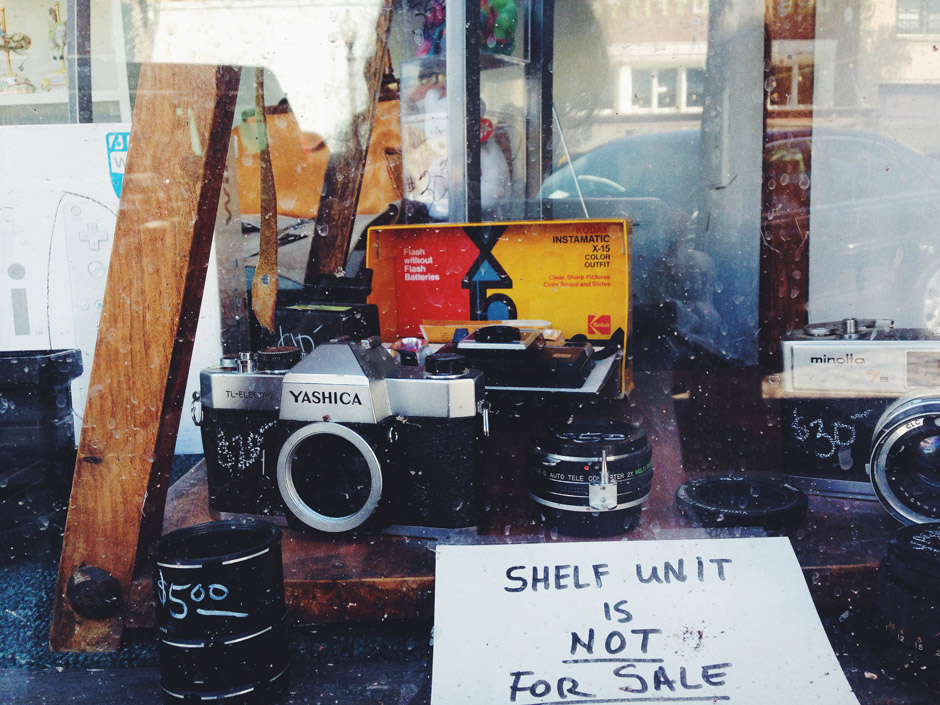 KODAK
INSTAMATIC
X-15
COLOR
OUTFIT
Clear, Sharp Pictures
Color Snaps and Slides
Flash
without
Flash
Batteries
X
15
Kodak
TL-ELECTRO
YASHICA
minolta
7s
$30
AUTO TELE CONVERTER 2X
$5.00
SHELF UNIT
IS
NOT
FOR SALE